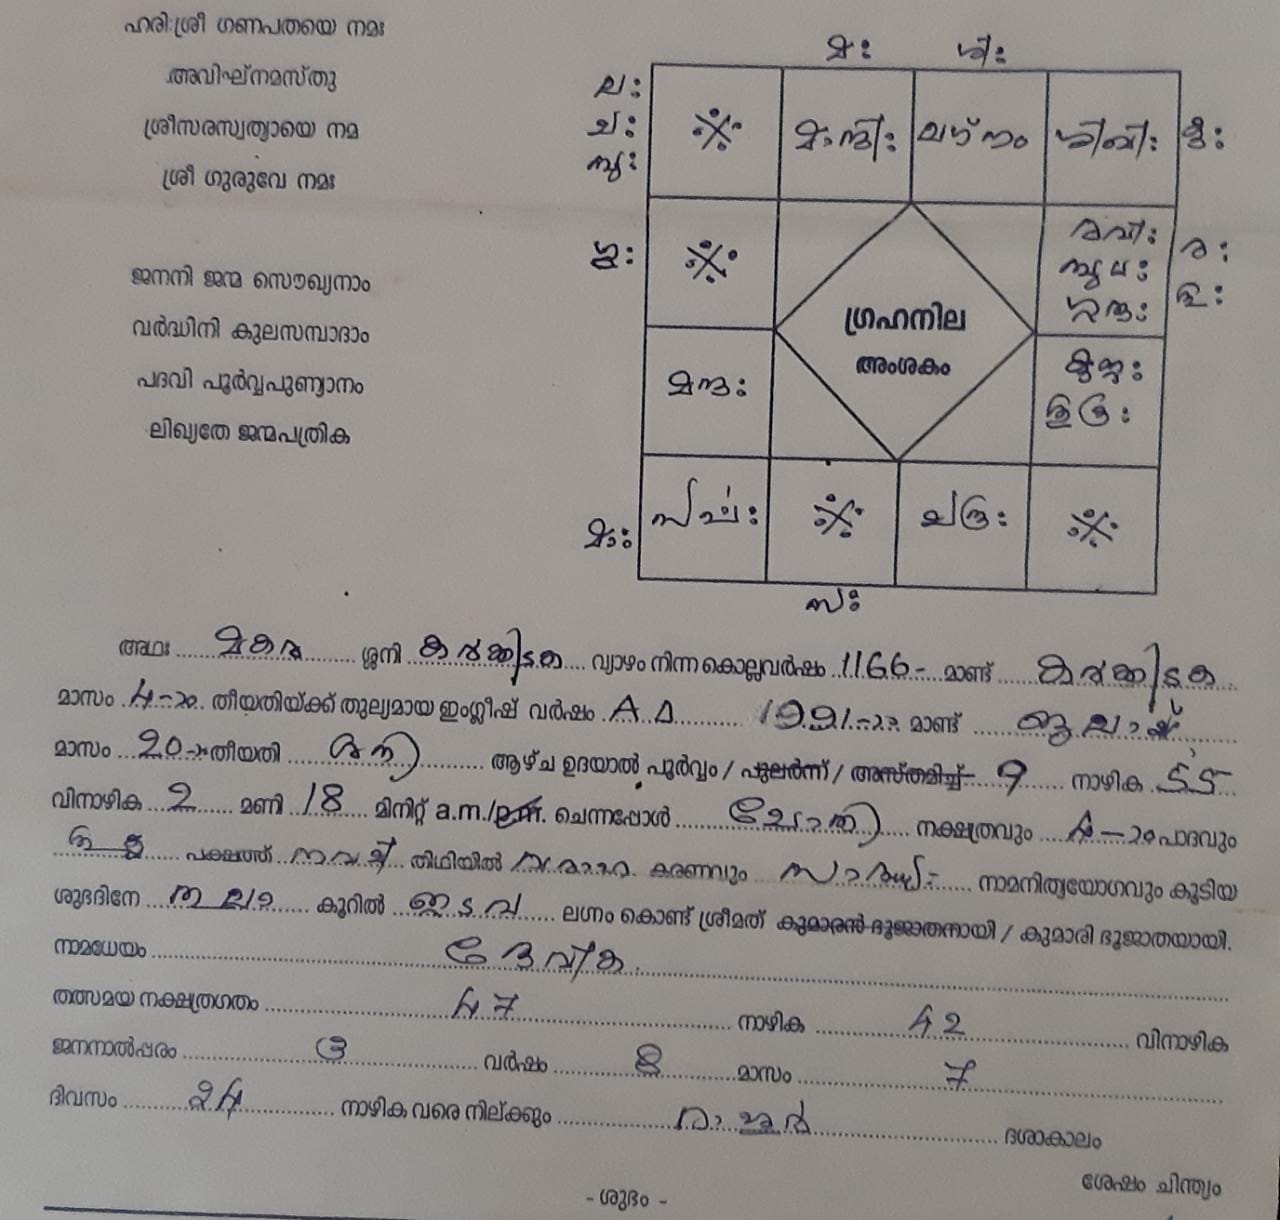 ഹരിഃശ്രീ ഗണപതയെ നമഃ
അവിഘ്നമസ്തു
ശ്രീസരസ്വത്യായെ നമ
ശ്രീ ഗുരുവേ നമഃ
ജനനി ജന്മ സൌഖ്യനാം
വർദ്ധിനി കുലസമ്പാദാം
പദവി പൂർവ്വപുണ്യാനം
ലിഖ്യതേ ജന്മപത്രിക
മഃ ശിഃ
ലഃ
ചഃ
ബുഃ
മാന്ദിഃ ലഗ്നം ശിഖിഃ കുഃ
ഗുഃ
രവിഃ രഃ
ബുധഃ
ഗുരുഃ ശുഃ
ഗ്രഹനില
അംശകം
മന്ദഃ
കുജഃ
ശുക്രഃ
സർപ്പഃ
ചന്ദ്രഃ
മാഃ
സഃ
അഥഃ മകര ശ്ശനി കർക്കിടക വ്യാഴം നിന്ന കൊല്ലവർഷം 1166- മാണ്ട് കർക്കിടക
മാസം 4-ാം തീയതിയ്ക്ക് തുല്യമായ ഇംഗ്ലീഷ് വർഷം A.D 1991-ാം മാണ്ട് ജൂലായ്
മാസം 20-ാം തീയതി ശനി ആഴ്ച ഉദയാൽ പൂർവ്വം / പുലർന്ന് / അസ്തമിച്ച് 9 നാഴിക 55
വിനാഴിക 2 മണി 18 മിനിറ്റ് a.m./p.m. ചെന്നപ്പോൾ ചോതി നക്ഷത്രവും 4-ാം പാദവും
പക്ഷത്ത് നവമി തിഥിയിൽ വരാഹ കരണവും സാദ്ധ്യ നാമനിത്യയോഗവും കൂടിയ
ശുഭദിനേ തുലാ കൂറിൽ ഇടവ ലഗ്നം കൊണ്ട് ശ്രീമത് കുമാരൻ ഭൂജാതനായി / കുമാരി ഭൂജാതയായി.
നാമധേയം ദേവിക
തത്സമയ നക്ഷത്രഗതം 47 നാഴിക 42 വിനാഴിക
ജനനാൽപ്പരം 3 വർഷം 8 മാസം 7
ദിവസം 24 നാഴിക വരെ നില്ക്കും രാഹുർ ദശാകാലം
ശേഷം ചിന്ത്യം
- ശുഭം -